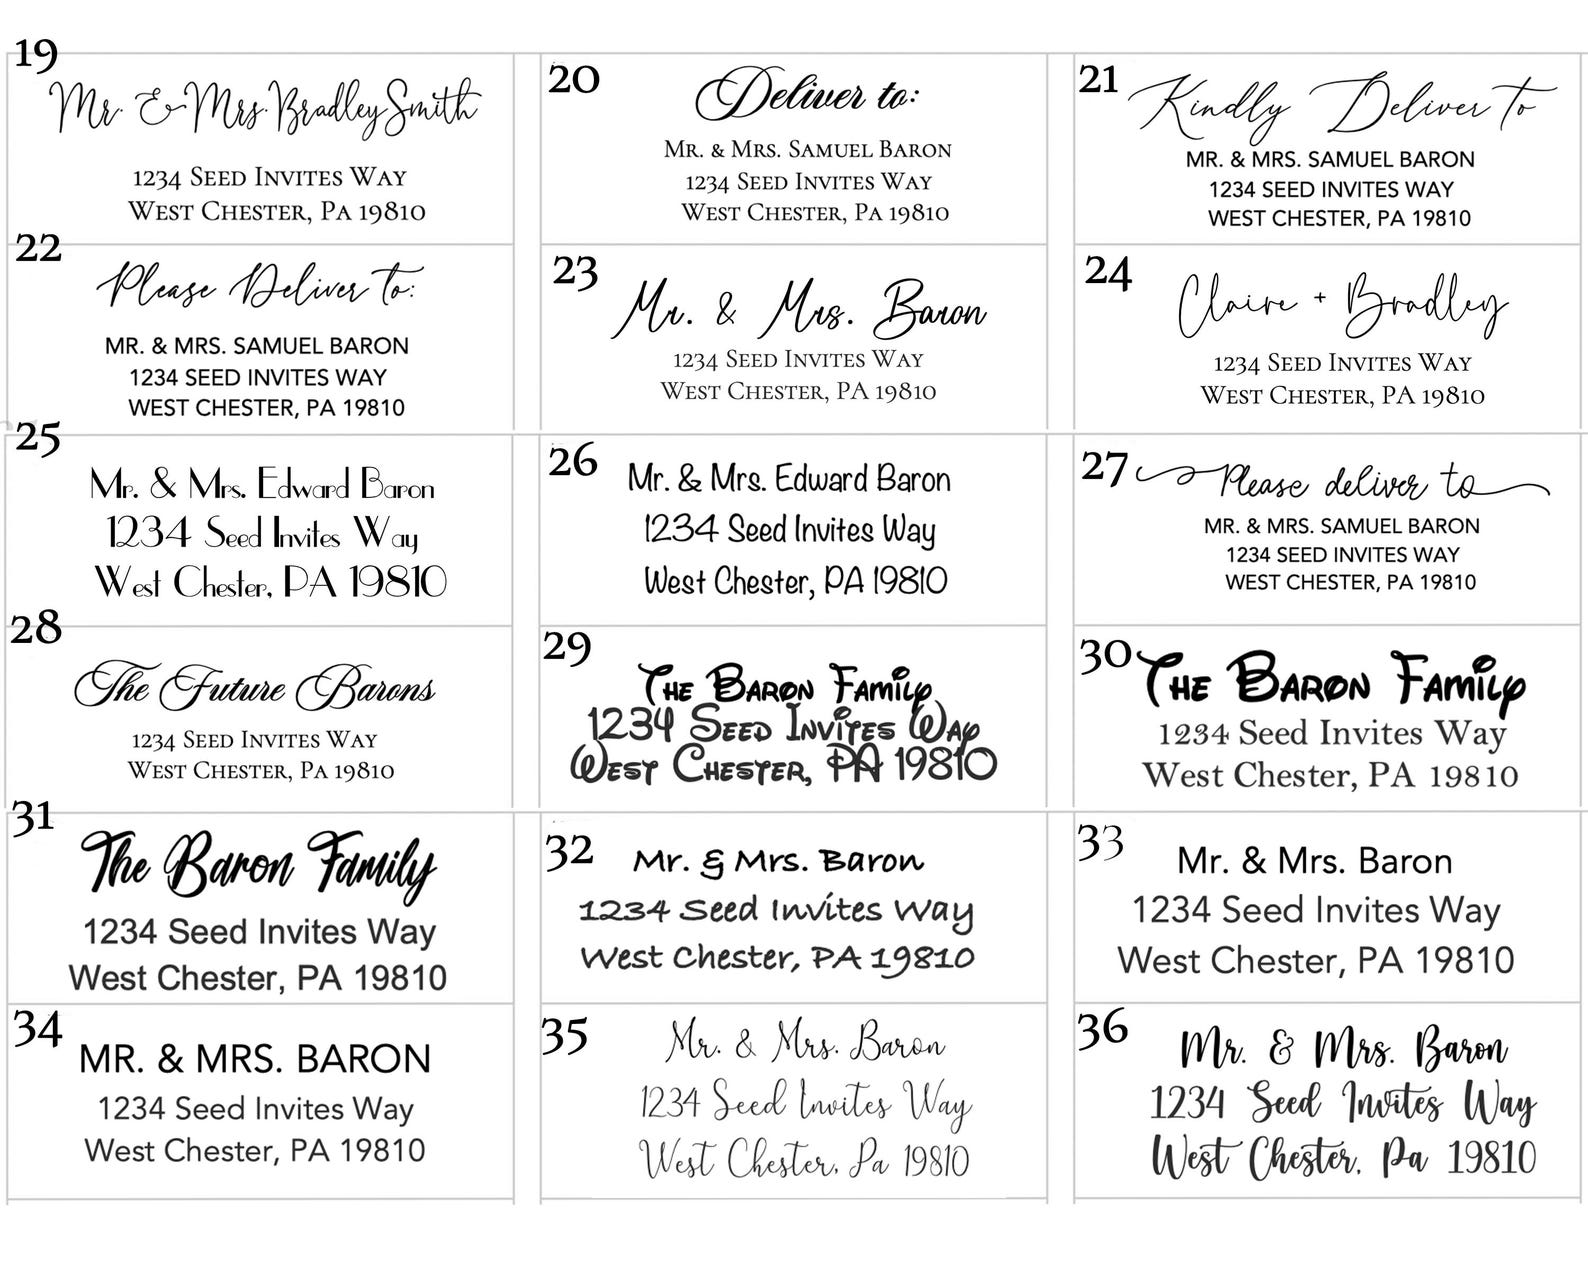 19
Mr. & Mrs. Bradley Smith
1234 Seed Invites Way
West Chester, Pa 19810
20
Deliver to:
Mr. & Mrs. Samuel Baron
1234 Seed Invites Way
West Chester, Pa 19810
21
Kindly Deliver To
MR. & MRS. SAMUEL BARON
1234 SEED INVITES WAY
WEST CHESTER, PA 19810
22
Please Deliver to:
MR. & MRS. SAMUEL BARON
1234 SEED INVITES WAY
WEST CHESTER, PA 19810
23
Mr. & Mrs. Baron
1234 Seed Invites Way
West Chester, PA 19810
24
Claire + Bradley
1234 Seed Invites Way
West Chester, PA 19810
25
Mr. & Mrs. Edward Baron
1234 Seed Invites Way
West Chester, PA 19810
26
Mr. & Mrs. Edward Baron
1234 Seed Invites Way
West Chester, PA 19810
27
Please deliver to
MR. & MRS. SAMUEL BARON
1234 SEED INVITES WAY
WEST CHESTER, PA 19810
28
The Future Barons
1234 Seed Invites Way
West Chester, Pa 19810
29
The Baron Family
1234 Seed Invites Way
West Chester, PA 19810
30
The Baron Family
1234 Seed Invites Way
West Chester, PA 19810
31
The Baron Family
1234 Seed Invites Way
West Chester, PA 19810
32
Mr. & Mrs. Baron
1234 Seed Invites Way
West Chester, PA 19810
33
Mr. & Mrs. Baron
1234 Seed Invites Way
West Chester, PA 19810
34
MR. & MRS. BARON
1234 Seed Invites Way
West Chester, PA 19810
35
Mr. & Mrs. Baron
1234 Seed Invites Way
West Chester, Pa 19810
36
Mr. & Mrs. Baron
1234 Seed Invites Way
West Chester, Pa 19810